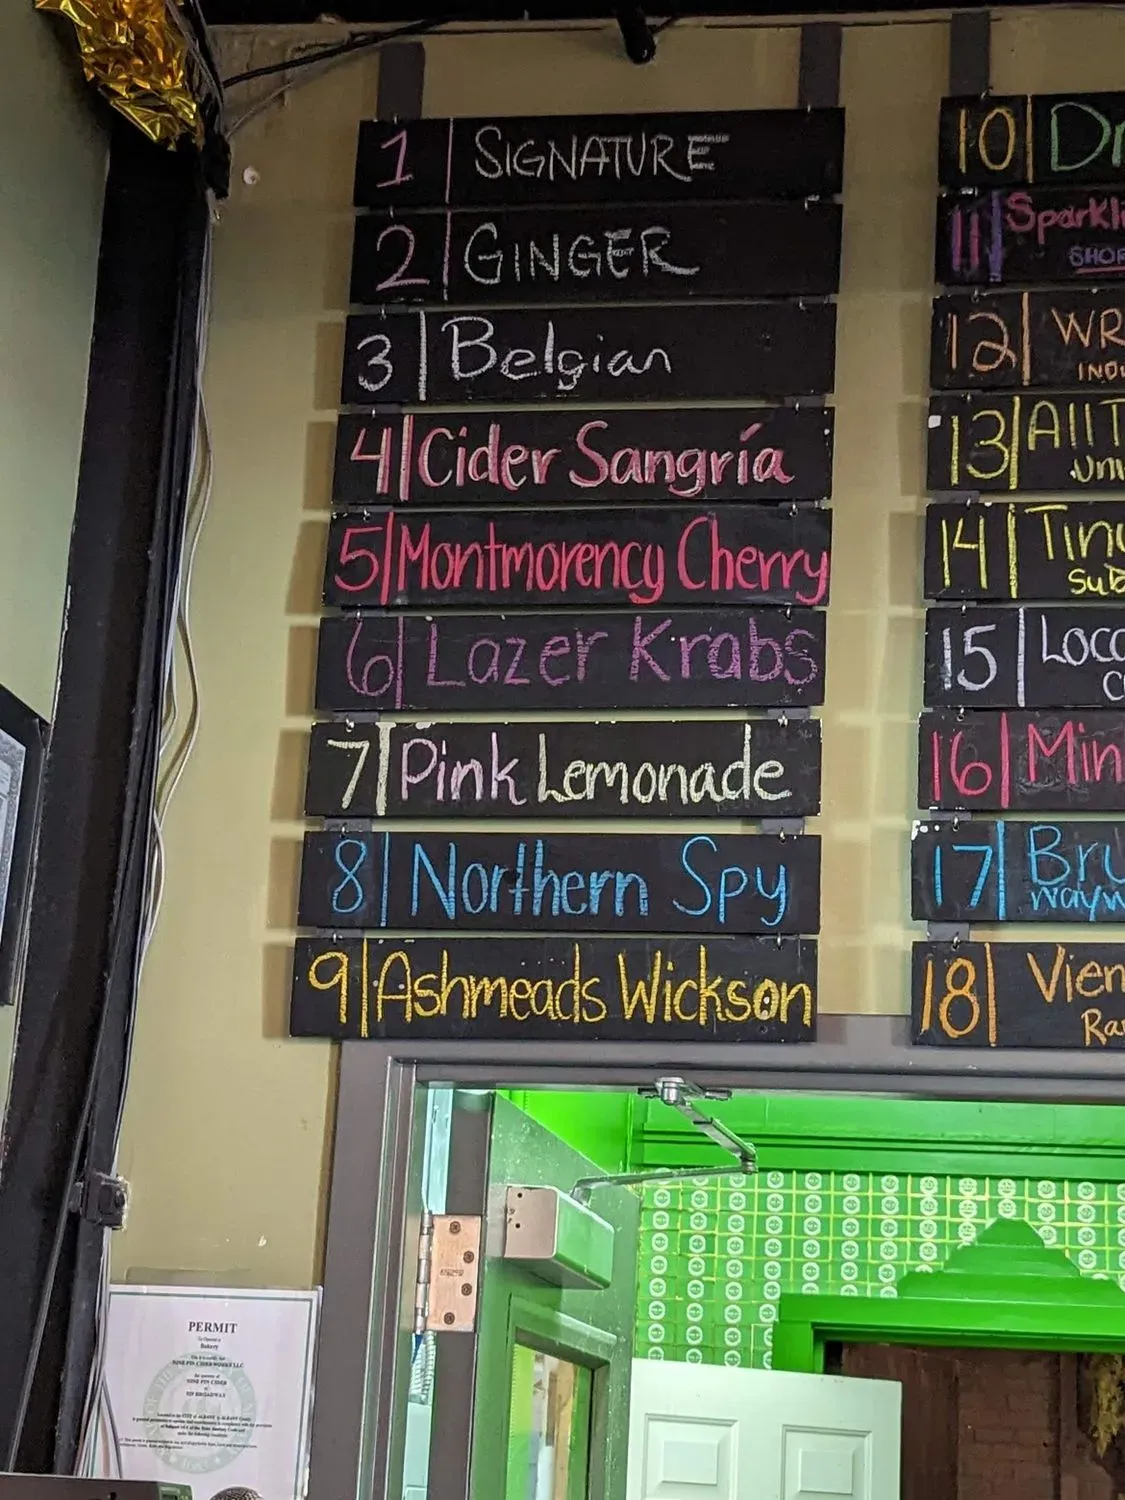 1 SIGNATURE
2 GINGER
3 Belgian
4 Cider Sangría
5 Montmorency Cherry
6 Lazer Krabs
7 Pink Lemonade
8 Northern Spy
9 Ashmeads Wickson
10 Dr
11 Sparkli
SHOP
12 WR
INDI
13 All T
Uni
14 Tiny
Sub
15 Loca
C
16 Min
17 Bru
wayw
18 Vien
Ra
PERMIT
To Operate a
Bakery
This is to certify that
NINE PIN CIDERWORKS LLC
the operator of
NINE PIN CIDER
at
929 BROADWAY